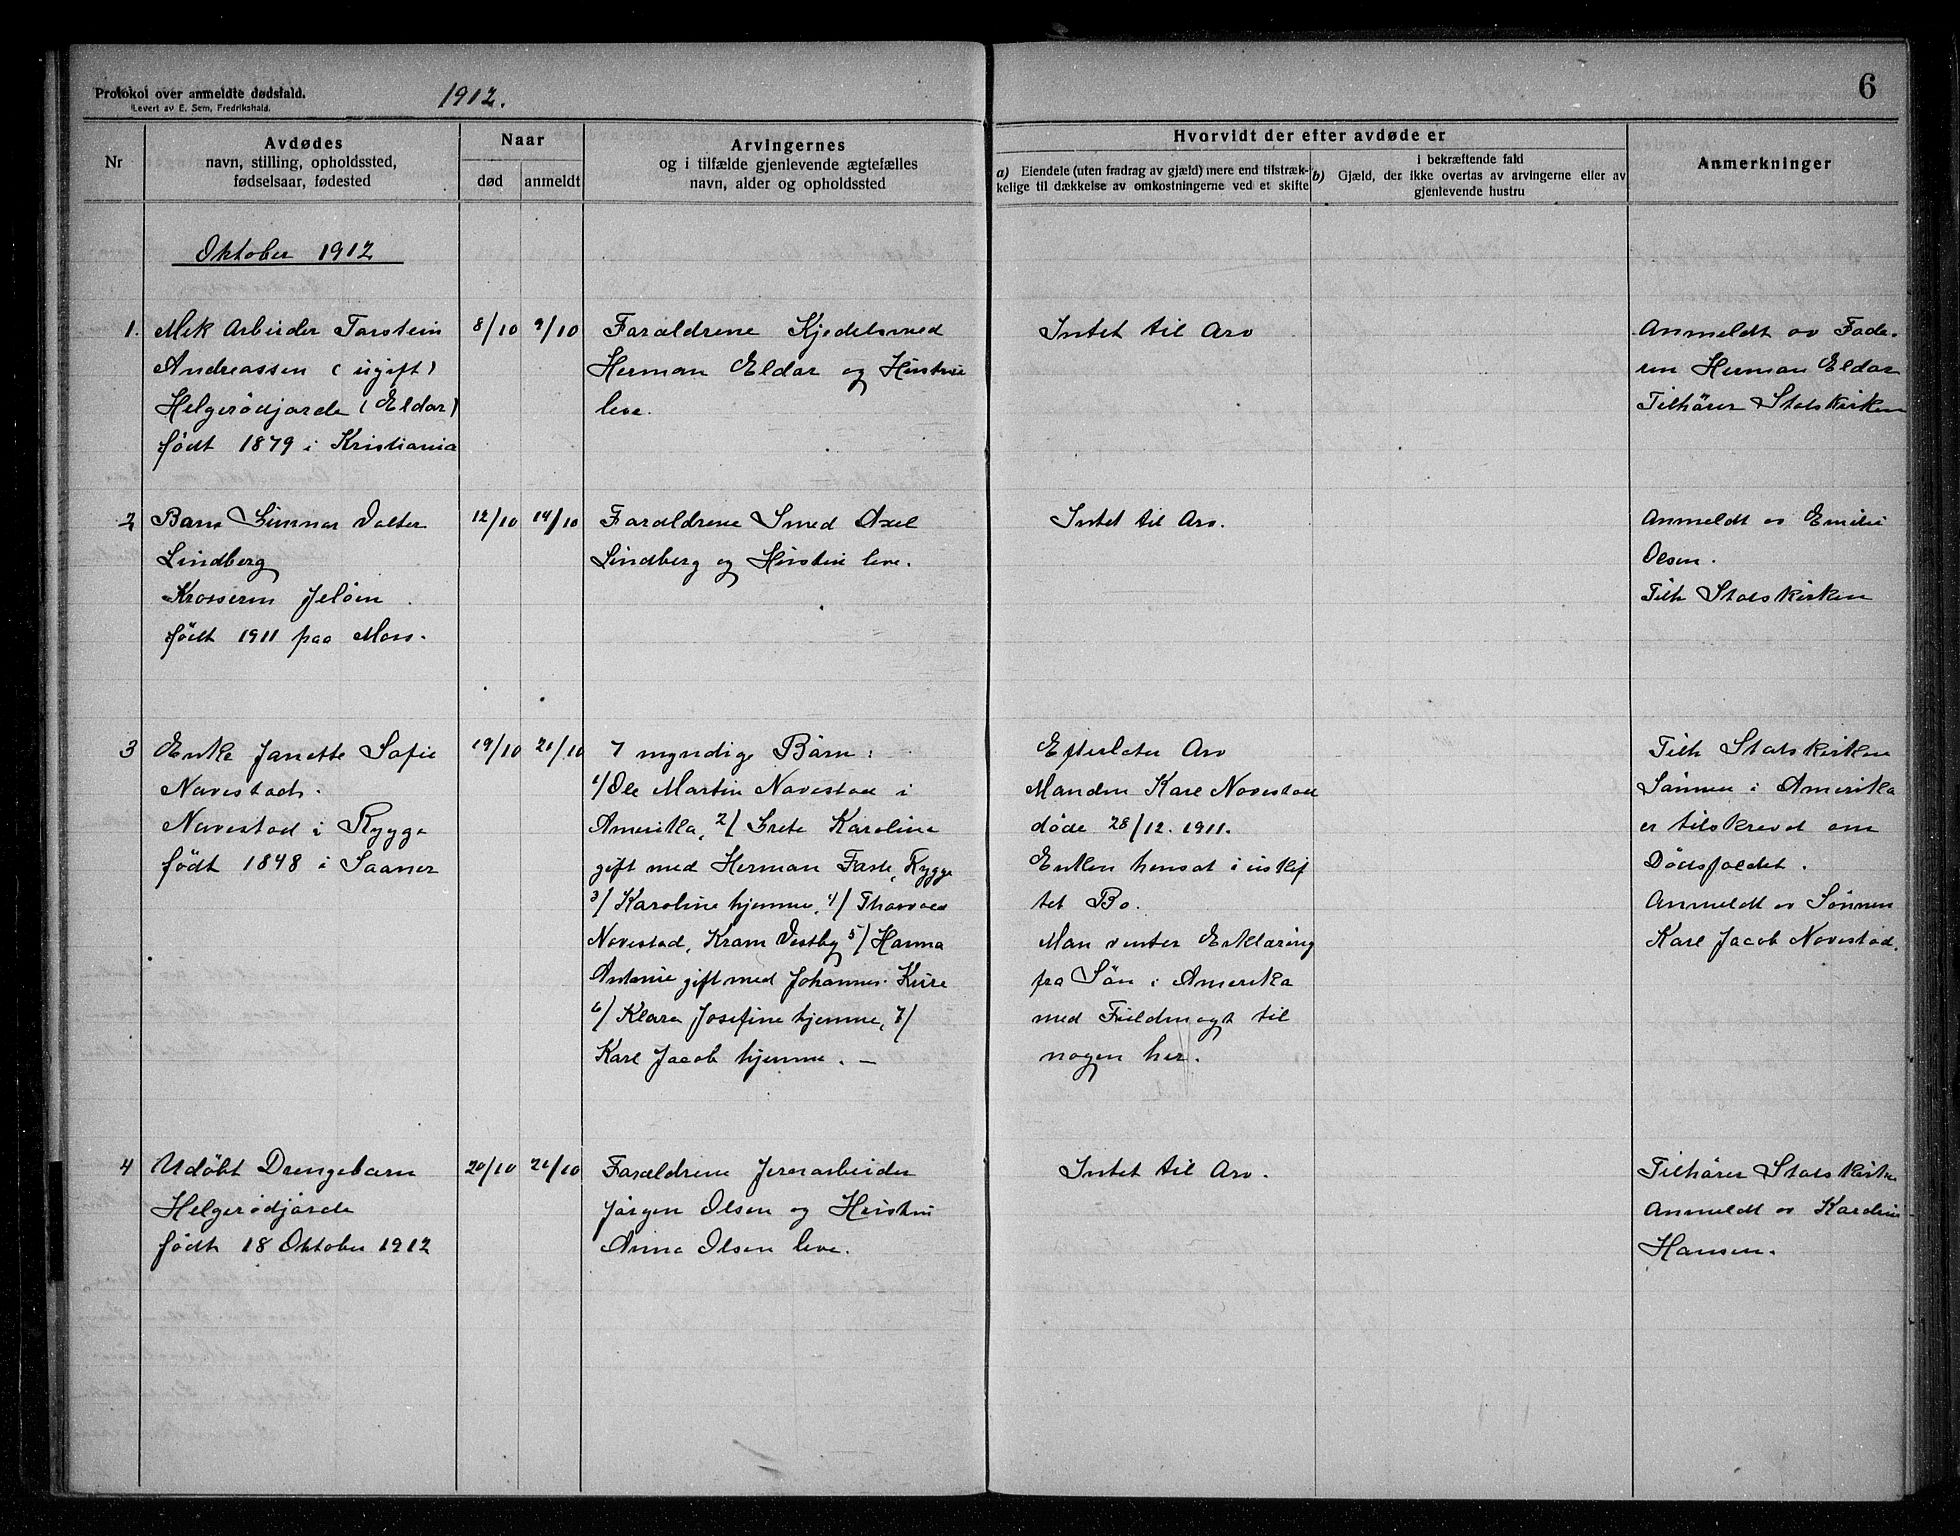 Protokol over anmeldte dødsfald.
Levert av E. Sem, Fredrikshald.
1912.
6
Nr
Avdødes
navn, stilling, opholdssted,
fødselsaar, fødested
Naar
død
anmeldt
Arvingernes
og i tilfælde gjenlevende ægtefælles
navn, alder og opholdssted
Hvorvidt der efter avdøde er
a) Eiendele (uten fradrag av gjæld) mere end tilstræk-
kelige til dækkelse av omkostningerne ved et skifte
i bekræftende fald
b) Gjæld, der ikke overtas av arvingerne eller av
gjenlevende hustru
Anmerkninger
Oktober 1912
1.
Mek Arbeider Torstein
Andreassen (ugift)
Helgerødjorde (Eldar)
født 1879 i Kristiania
8/10
9/10
Forældrene Kjedelsmed
Herman Eldar og Hustru
leve.
Intet til Arv
Anmeldt av Fade-
ren Herman Eldar
Tilhører Statskirken
2
Barn Gunnar Valter
Lindberg
Krosseren Jeløen
født 1911 paa Moss.
12/10
14/10
Forældrene Smed Axel
Lindberg og Hustru leve.
Intet til Arv.
Anmeldt av Emilie
Olsen.
Tilh Statskirken
3
Enke Janette Sofie
Navestad.
Navestad i Rygge
født 1848 i Saaner
19/10
21/10
7 myndige Børn:
1/ Ole Martin Navestad i
Amerika, 2/ Grete Karoline
gift med Herman Faste, Rygge
3/ Karoline hjemme, 4/ Thorvald
Navestad, Kram Vestby 5/ Hanna
Antonie gift med Johannes Kure
6/ Klara Josefine hjemme, 7/
Karl Jacob hjemme. —
Efterlater Arv
Manden Karl Navestad
døde 28/12. 1911.
Enken hensat i uskif
tet Bo.
Man venter Erklæring
fra Søn i Amerika
med Fuldmagt til
nogen her.
Tilh Statskirken
Sønnen i Amerika
er tilskrevet om
Dødsfaldet.
Anmeldt av Sønnen
Karl Jacob Navestad.
4
Udøbt Drengebarn
Helgerødjorde
født 18 Oktober 1912
20/10
21/10
Forældrene Jernarbeider
Jørgen Olsen og Hustru
Anna Olsen leve.
Intet til Arv.
Tilhører Statskirken
Anmeldt av Karoline
Hansen.